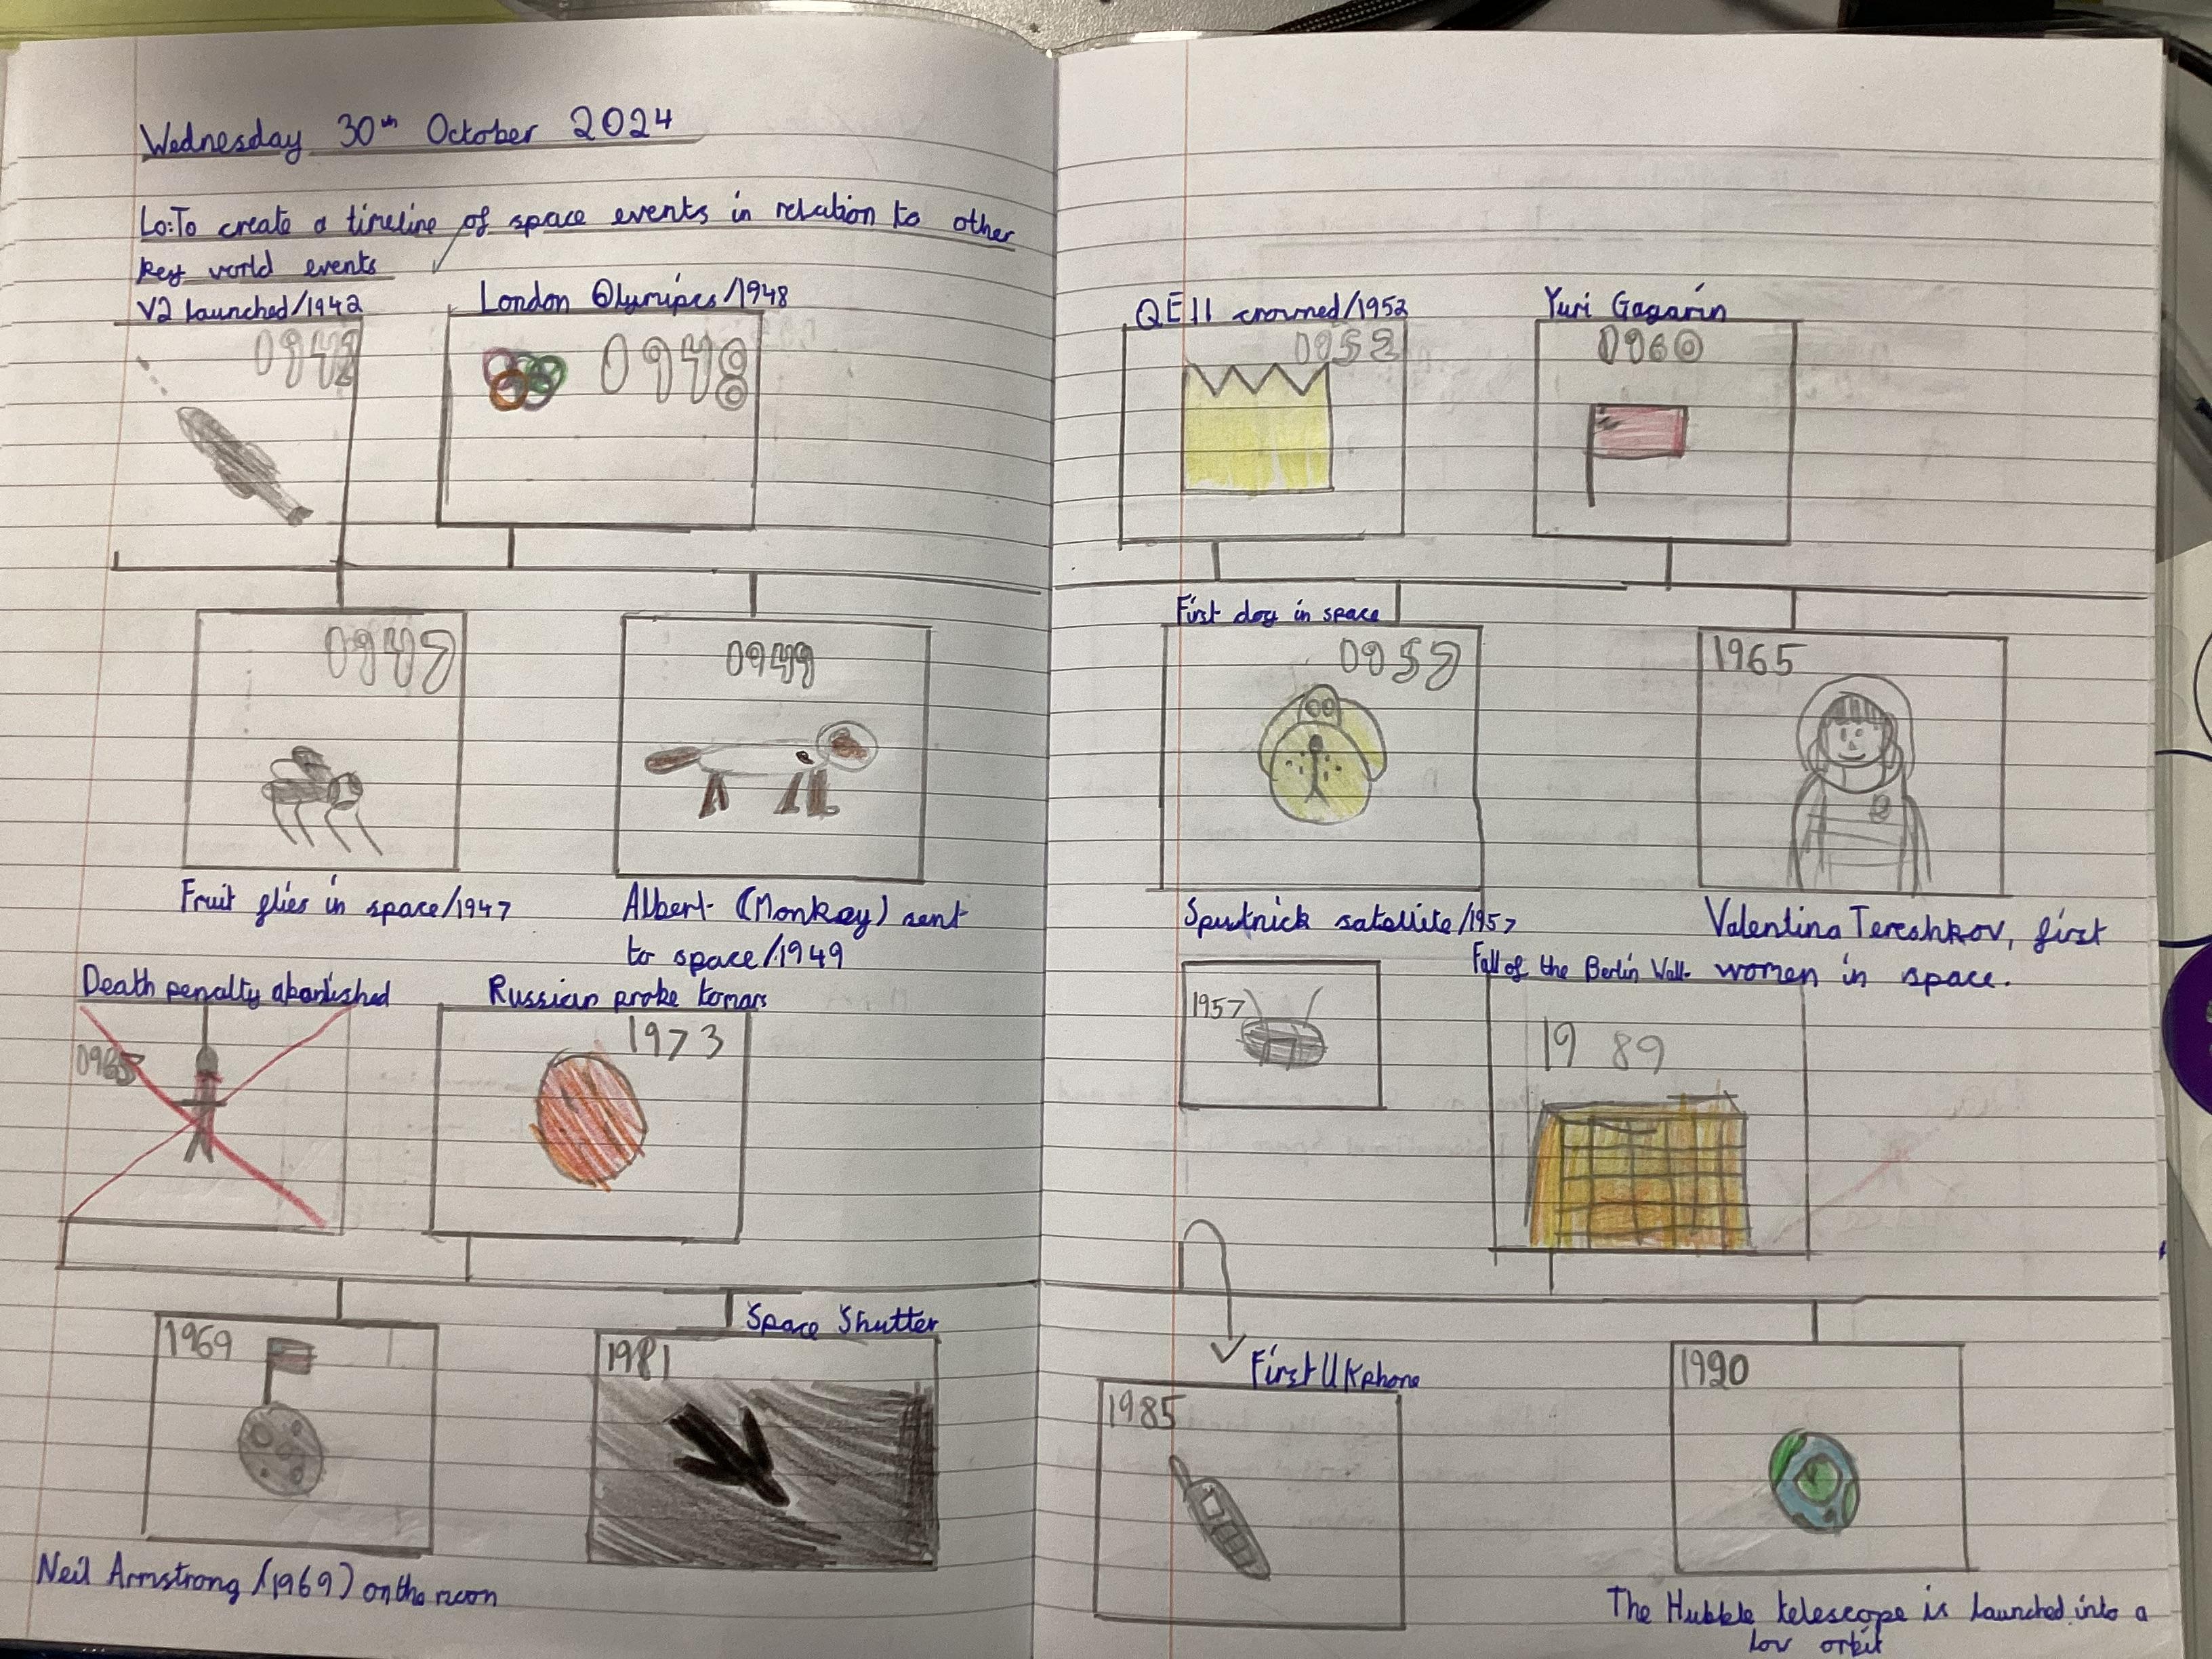 Wednesday 30th October 2024
Lo: To create a timeline of space events in relation to other
key world events
V2 launched/1942
1942
London Olymipcs/1948
1948
1947
Fruit flies in space/1947
1949
Albert (Monkey) sent
to space/1949
Death penalty abonlished
1965
Russian probe to mars
1973
1969
Neil Armstrong (1969) on the moon
Space Shutter
1981
QE11 crowned/1952
1952
Yuri Gagarin
1960
First dog in space
1957
Sputnick satellite/1957
1957
1965
Valentina Tereshkov, first
women in space.
Fall of the Berlin Wall
1989
First UK phone
1985
1990
The Hubble telescope is launched into a
low orbit